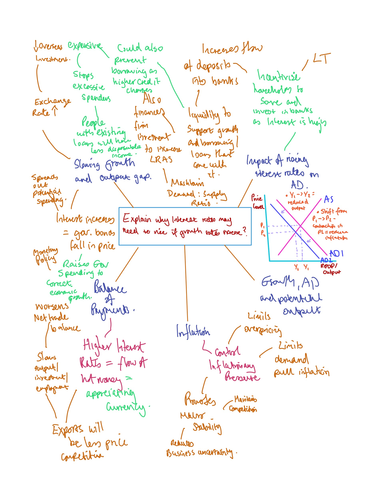 Lowers
Investment.
expensive
Stops
excessive
spenders
Could also
prevent
borrowing as
higher credit
charges
Increases flow
of deposits
into banks
LT
Exchange
Rate ↑
People
with existing
loans will have
less disposable
income
Also
finances
firm
investment
to increase
LRAS
liquidity to
supports growth
and borrowing
loans that
come with
it.
Incentivise
households to
save and
invest in banks
as interest is high
Slowing Growth
and output gap.
Maintains
Demand : Supply
Ratio.
Impact of rising
interest rates on
AD.
Spreads
out
potential
spending.
Explain why Interest rates may
need to rise if growth rates
Price
level
AS
Y₁ → Y₂ =
reduced
output
P₁
P₂
Y₂ Y₁
AD1
AD2
Output
Interest increases
= gov. bonds
fall in price
Monetary
Policy
Raises Gov
Spending to
correct
economic
growth.
Balance
of
Payments.
Growth, AD
and potential
outputs
Worsens
Net trade
balance
Inflation
Limits
overpricing
Higher Interest
Rates = flow of
hot money =
appreciating
currency.
Control
Inflationary
Pressure
Limits
demand
pull inflation
Slows
output/
investment/
employment
Promotes
Market
Stability
Maintains
Competition
Exports will
be less price
competitive
Reduces
Business uncertainty.